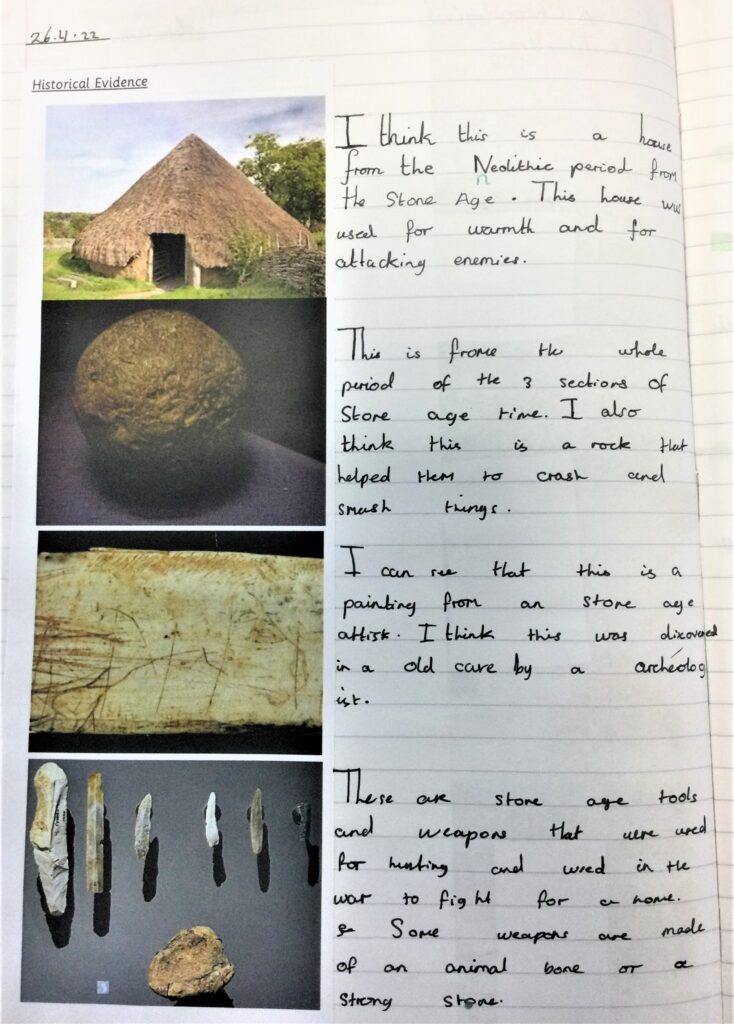 26.4.22
Historical Evidence
I think this is a house
from the Neolithic period from
n
the Stone Age. This house was
used for warmth and for
attacking enemies.
This is frome the whole
period of the 3 sections of
Stone age time. I also
think this is a rock that
helped them to crash and
smash things.
I can see that this is a
painting from an stone age
attisk. I think this was dicovered
in a old cave by a archéolog
ist.
These are stone age tools
and weapons that were used
for hunting and used in the
war to fight for a home.
Some weapons are made
of an animal bone or a
strong stone.